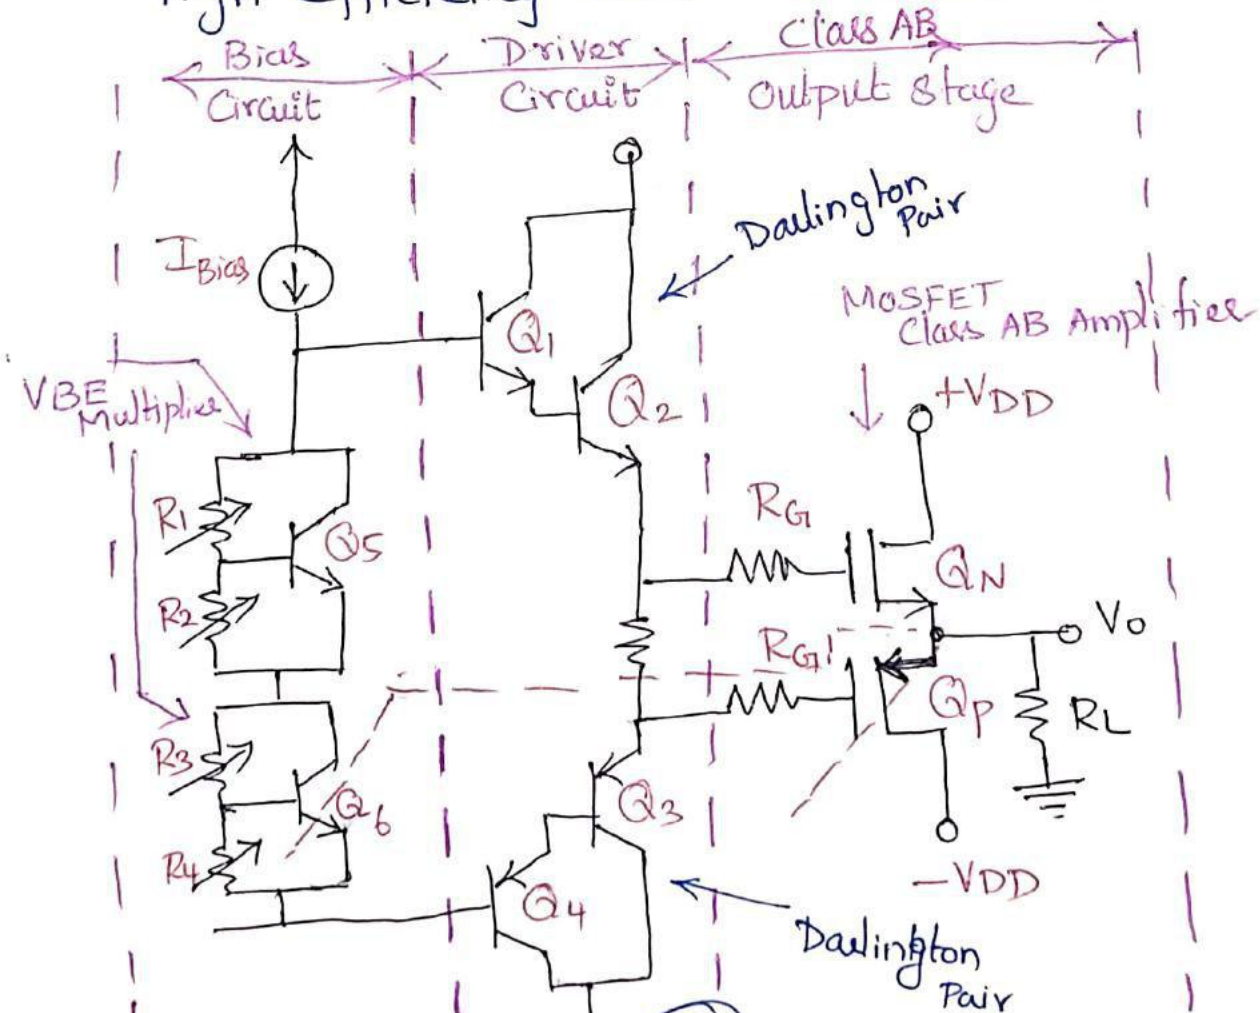 High Efficiency
Bias
Circuit
Driver
Circuit
Class AB
Output Stage
Darlington
Pair
I Bias
Q1
MOSFET
Class AB Amplifier
VBE
Multiplier
Q2
+VDD
R1
Q5
RG
QN
R2
Vo
RG
R3
QP
RL
Q6
Q3
R4
Q4
-VDD
Darlington
Pair